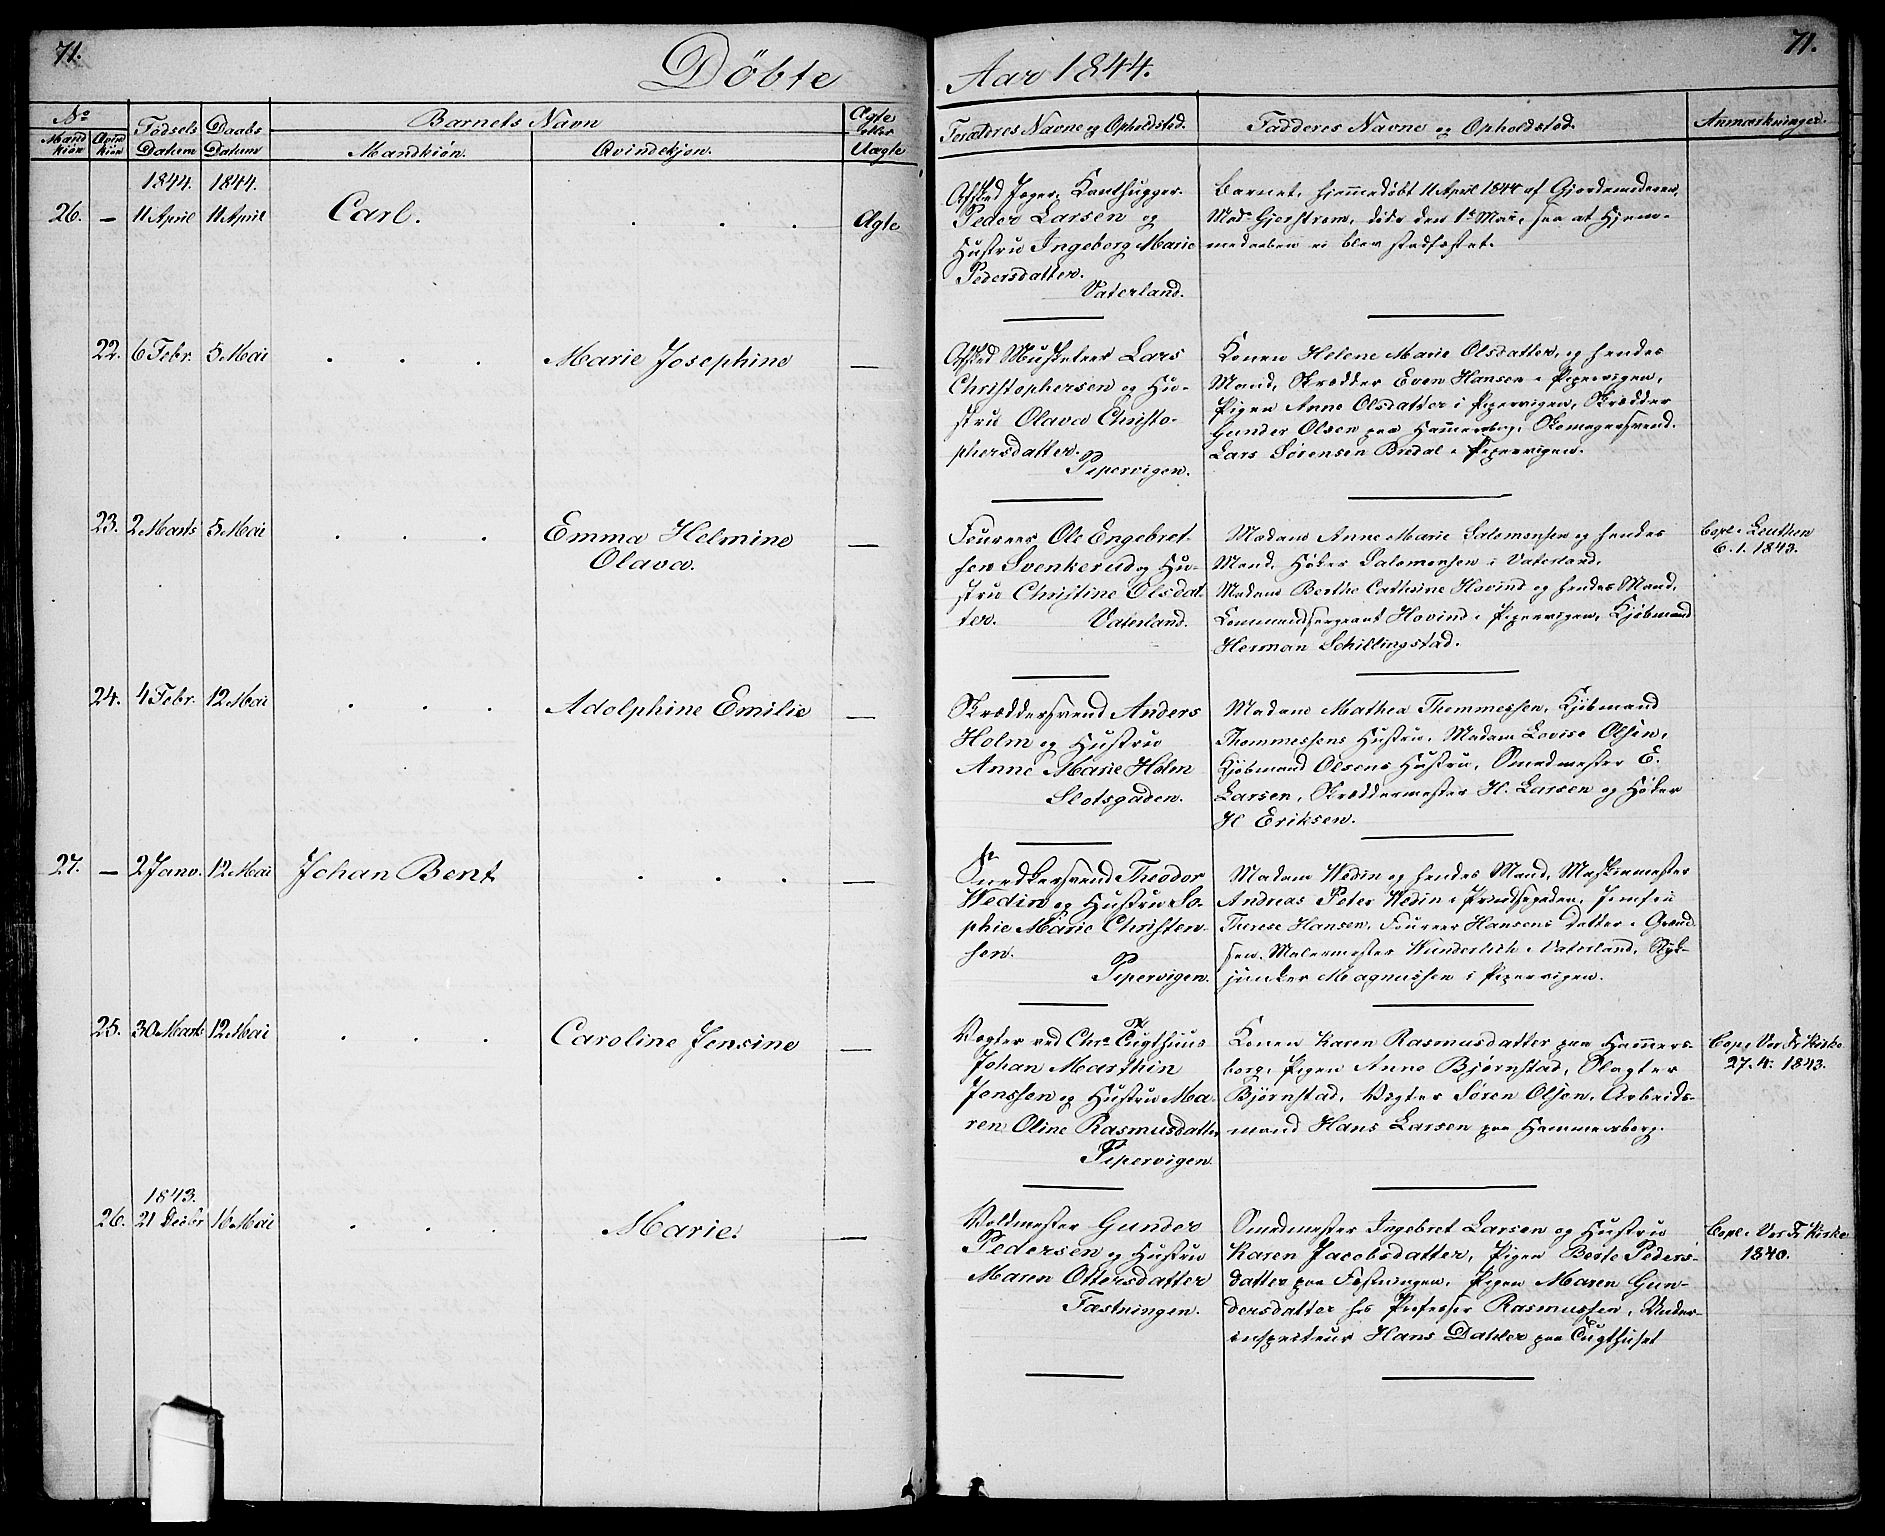 71.
Döbte
Aar 1844.
71.
No
Mand kiøn
Qvin kiøn
Fødsels Datum
Daabs Datum
Barnets Navn
Mandkiøn.
Qvindekjøn.
Ægte eller Uægte
Forældres Navne og Opholdsted.
Fadderes Navne og Opholdsted.
Anmærkninger.
1844. 1844.
26. — 11 April 11 April Carl. . . . Ægte
Afsked Jæger, Kanthugger
Peder Larsen og
Hustru Ingeborg Marie
Pedersdatter.
Vaterland.
Barnet, hjemmedøbt 11 April 1844 af Gjordemoderen,
Mad. Gjerstrøm, døde den 1te Mai, saa at Hjem-
medaaben ei blev stadfæstet.
22. 6 Febr. 5 Mai . . . Marie Josephine —
Afsked Musketeer Lars
Christophersen og Hu-
stru Olava Christo-
phersdatter.
Pipervigen.
Konen Helene Marie Olsdatter, og hendes
Mand, Skrædder Even Hansen i Pipervigen,
Pigen Anne Olsdatter i Pipervigen, Skrædder
Gunder Olsen paa Hammersborg, Skomagersvend
Lars Sørensen Bredal i Pipervigen.
23. 2 Marts 5 Mai . . . Emma Helmine
Olava. —
Foureer Ole Engebret-
sen Svenkerud og Hu-
stru Christine Olsdat-
ter. Vaterland.
Madam Anne Marie Salomonsen og hendes
Mand, Høker Salomonsen i Vaterland,
Madam Berthe Cathrine Hovind og hendes Mand,
Commandsergeant Hovind i Pipervigen, Kjøbmand
Herman Schillingstad.
Copl. i Leuthen
6. 1. 1843.
24. 4 Febr. 12 Mai . . . Adolphine Emilie —
Skræddersvend Anders
Holm og Hustru
Anne Marie Holm
Slotsgaden.
Madam Mathea Thommessen, Kjøbmand
Thommessens Hustru, Madam Lovise Olsen,
Kjøbmand Olsens Hustru, Smedmester E.
Larsen, Skræddermester H. Larsen og Høker
H Eriksen.
27. — 2 Janv. 12 Mai Johan Bent . . . —
Snedkersvend Theodor
Wedin og Hustru So-
phie Marie Christen-
sen.
Pipervigen.
Madam Wedin og hendes Mand, Maskinmester
Andreas Peter Wedin i Prindsegaden, Jomfru
Therese Hansen, Foureer Hansens Datter i Grønd-
sen, Malermester Wunderlich i Vaterland, Styk-
junker Magnussen i Pipervigen.
25. 30 Marts 12 Mai . . . Caroline Jensine —
Vogter ved Chra Tugthuus
Johan Marthin
Jenssen og Hustru Ma-
ren Oline Rasmusdatter
Pipervigen.
Konen Karen Rasmusdatter paa Hammers-
borg, Pigen Anne Bjørnstad, Slagter
Bjørnstad, Vogter Søren Olsen, Arbeids-
mand Hans Larsen paa Hammersborg.
Cop. i Vor Fr. Kirke
27. 4. 1843.
1843.
26. 21 Decbr 16 Mai . . . Marie. —
Voldmester Gunder
Pedersen og Hustru
Maren Ottersdatter
Fæstningen.
Smedmester Ingebret Larsen og Hustru
Karen Jacobsdatter, Pigen Berte Peders-
datter paa Fæstningen, Pigen Maren Gun-
dersdatter hos Professor Rasmussen, Under-
inspecteur Hans Dahler paa Tugthuset
Copl. i Vor Fr. Kirke
1840.